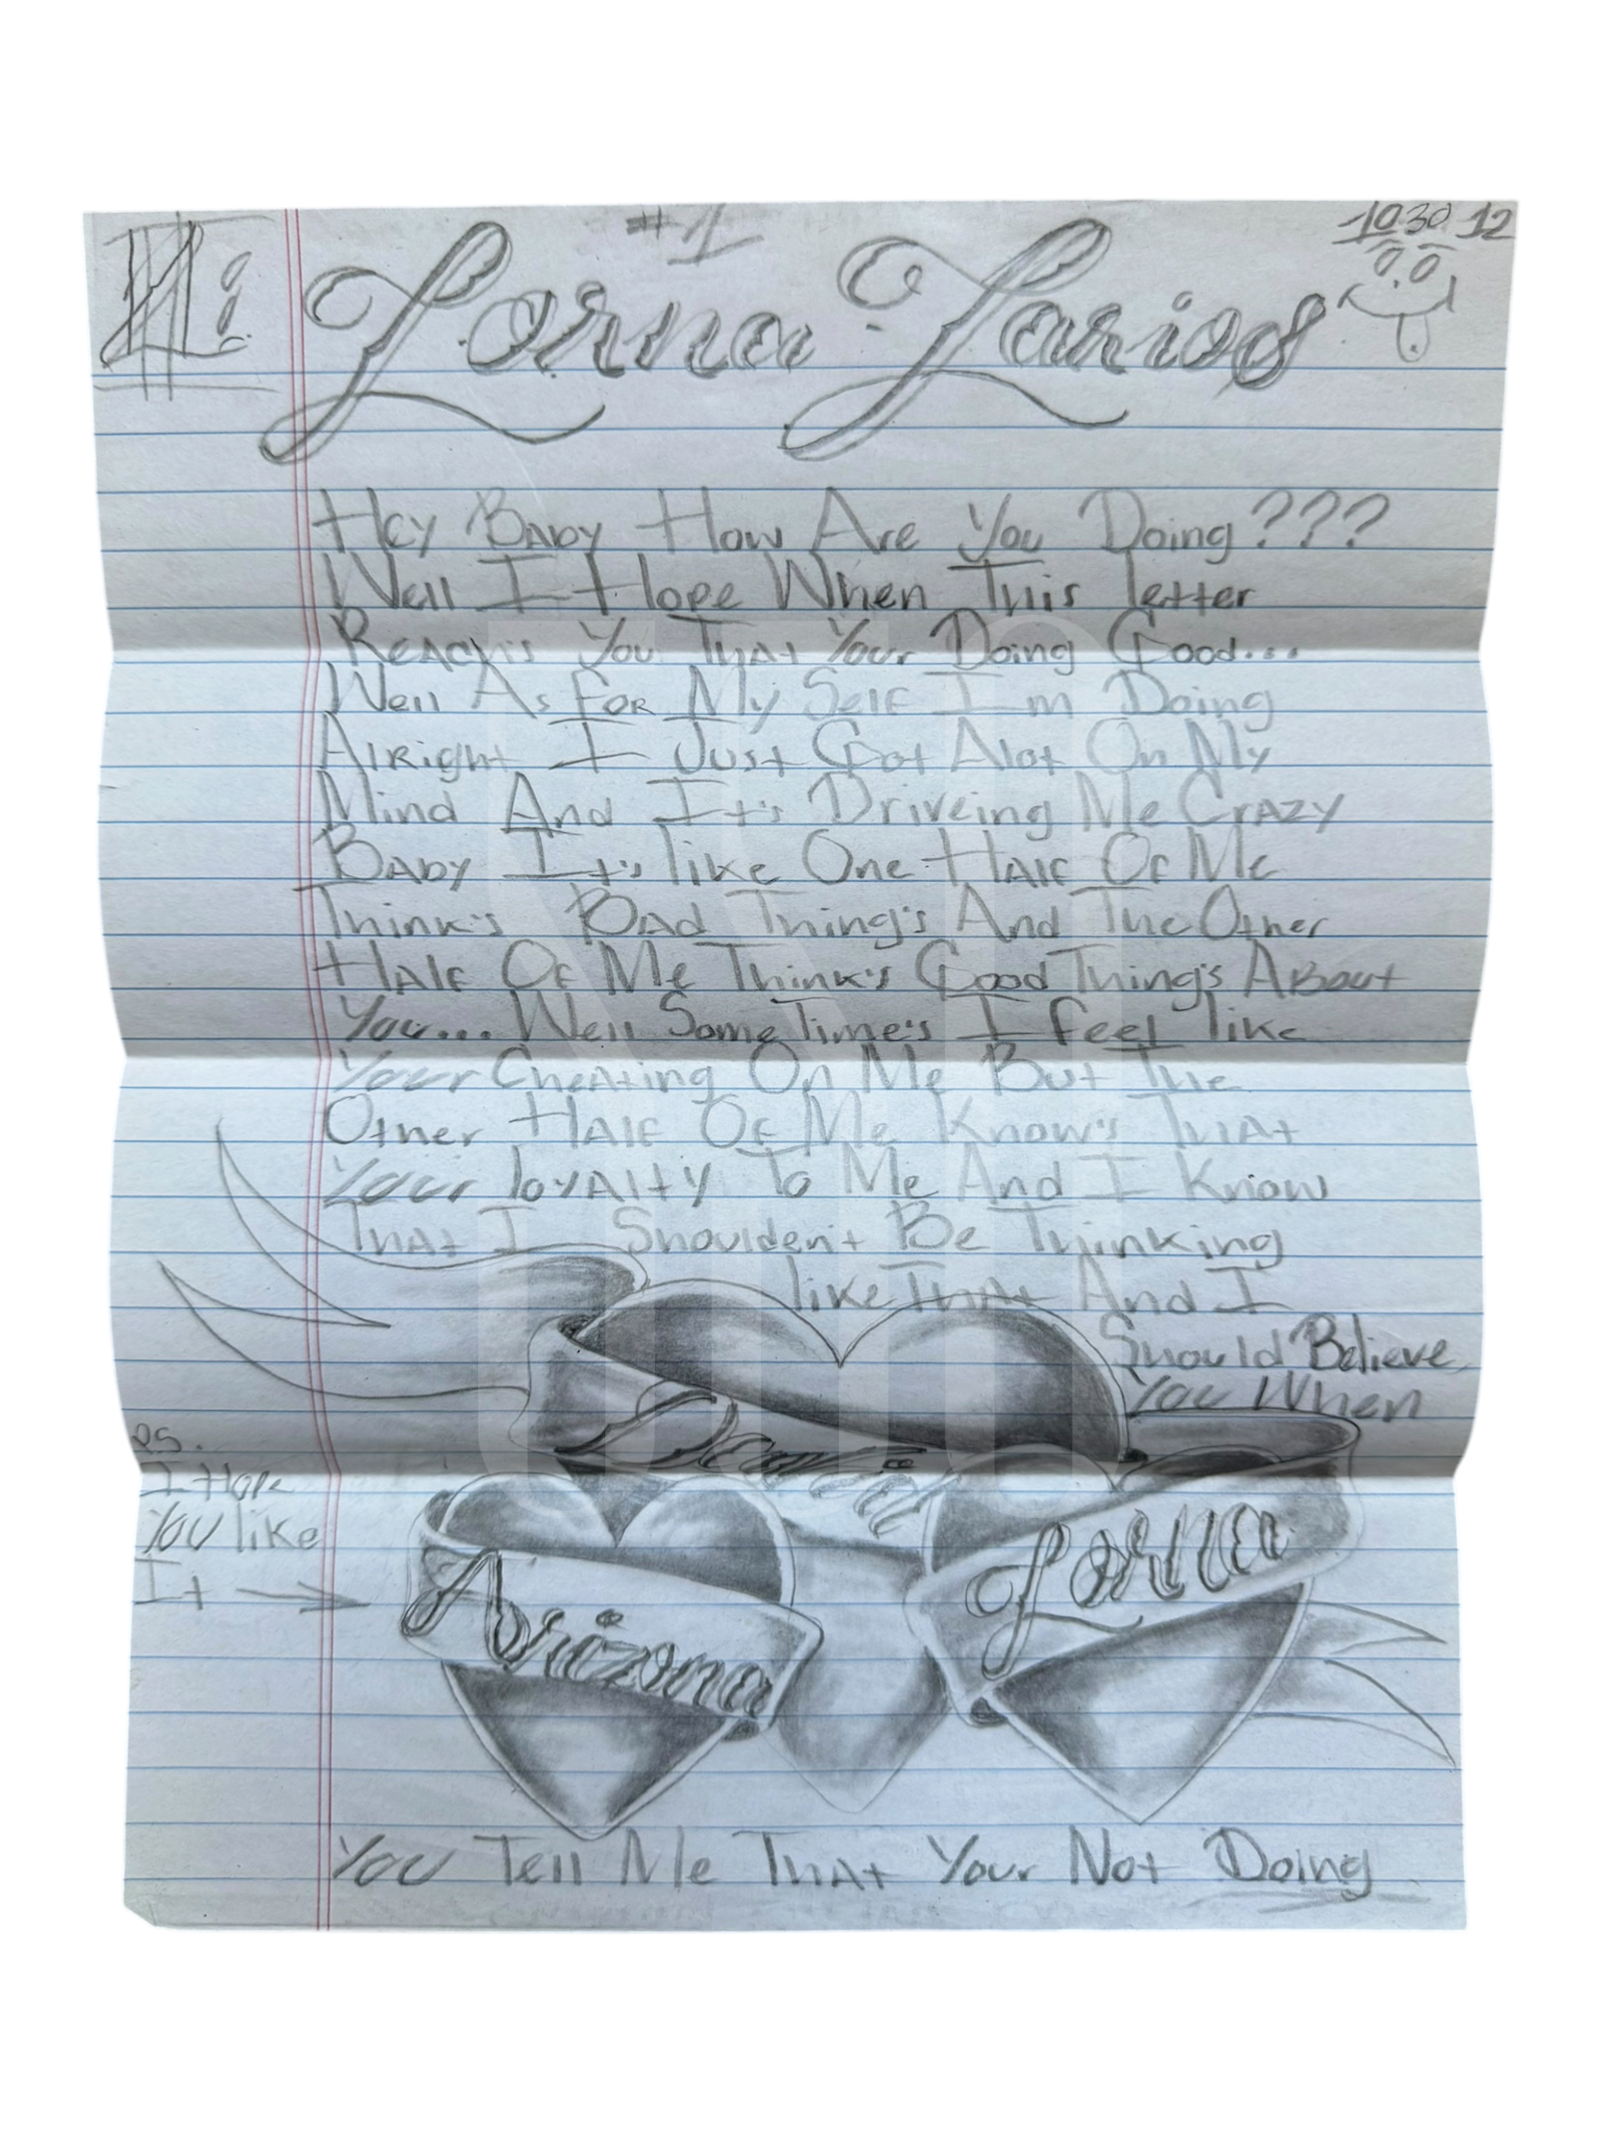 #1
10 30 12
Hi
Lorna Larios
Hey Baby How Are You Doing???
Well I Hope When This letter
Reach's You That Your Doing Good...
Well As For My Self I'm Doing
Alright I Just Got Alot On My
Mind And It's Driveing Me Crazy
Baby It's like One Half Of Me
Think's Bad Thing's And The Other
Half Of Me Think's Good Thing's About
You... Well Some Time's I feel like
Your Cheating On Me But The
Other Half Of Me Know's That
Your loyalty To Me And I Know
That I Shoulden't Be Thinking
like That And I
Should Believe
You When
David
Lorna
Arizona
PS.
I Hope
You like
It →
You Tell Me That Your Not Doing